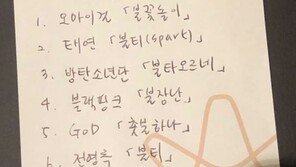 1. 오마이걸 「불꽃놀이」
2. 태연 「불티(spark)」
3. 방탄소년단 「불타오르네」
4. 블랙핑크 「불장난」
5. GOD 「촛불하나」
6. 전영록 「불티」